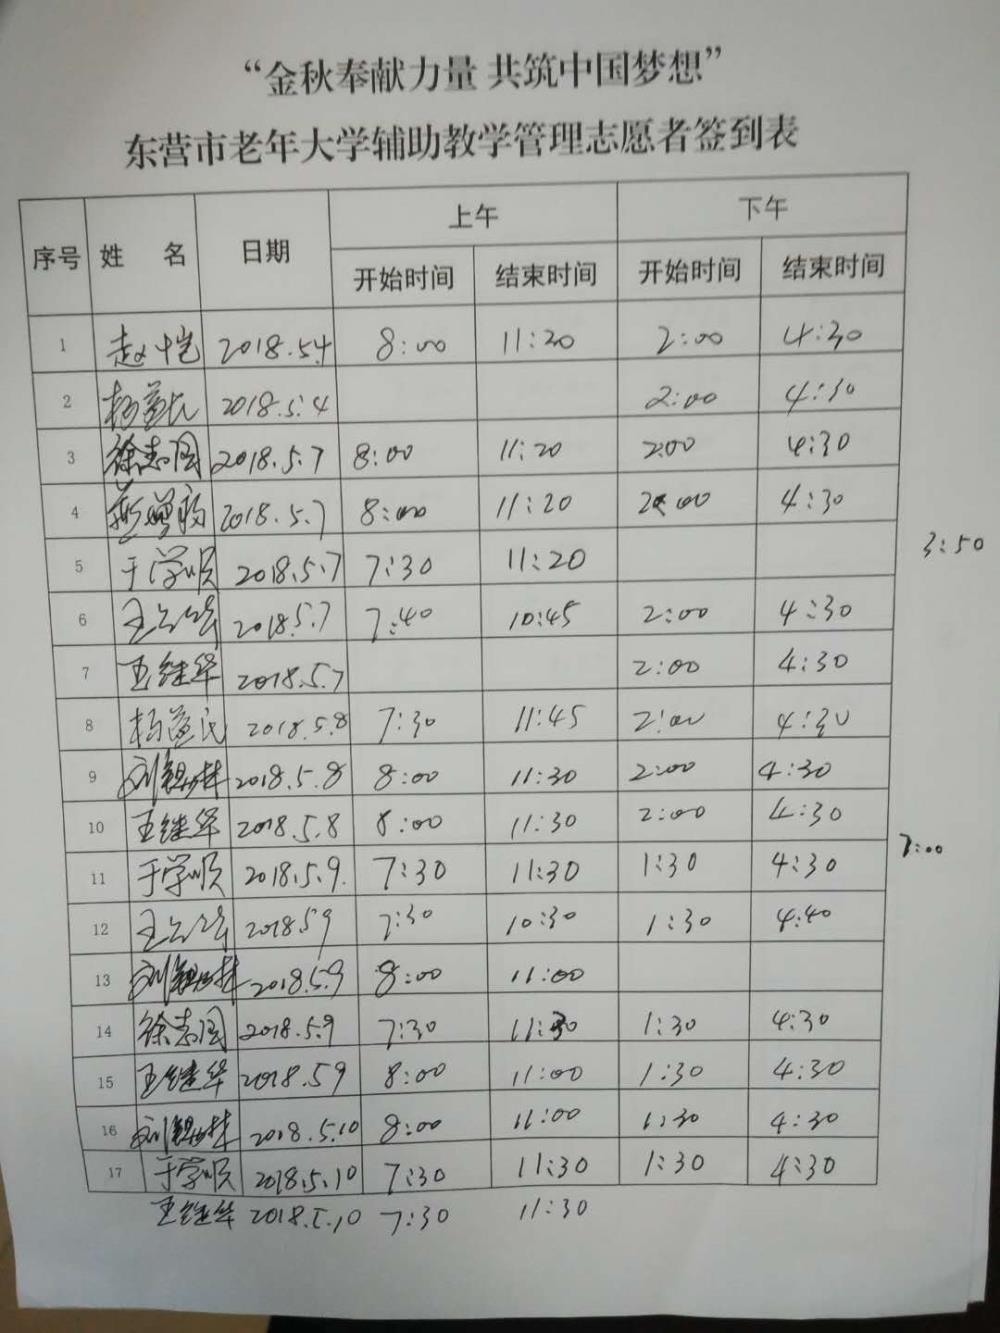 “金秋奉献力量 共筑中国梦想”
东营市老年大学辅助教学管理志愿者签到表
序号 姓 名 日期 上午 下午
开始时间 结束时间 开始时间 结束时间
1 2018.5.4 8:00 11:20 2:00 4:30
2 2018.5.4 2:00 4:30
3 徐志国 2018.5.7 8:00 11:20 2:00 4:30
4 2018.5.7 8:00 11:20 2:00 4:30
3:50
5 于学顺 2018.5.7 7:30 11:20
6 2018.5.7 7:40 10:45 2:00 4:30
7 王继华 2018.5.7 2:00 4:30
8 2018.5.8 7:30 11:45 2:00 4:30
9 2018.5.8 8:00 11:30 2:00 4:30
10 王继华 2018.5.8 8:00 11:30 2:00 4:30
7:00
11 于学顺 2018.5.9. 7:30 11:30 1:30 4:30
12 2018.5.9 7:30 10:30 1:30 4:40
13 2018.5.9 8:00 11:00
14 徐志国 2018.5.9 7:30 11:30 1:30 4:30
15 王继华 2018.5.9 8:00 11:00 1:30 4:30
16 2018.5.10 8:00 11:00 1:30 4:30
17 于学顺 2018.5.10 7:30 11:30 1:30 4:30
王继华 2018.5.10 7:30 11:30